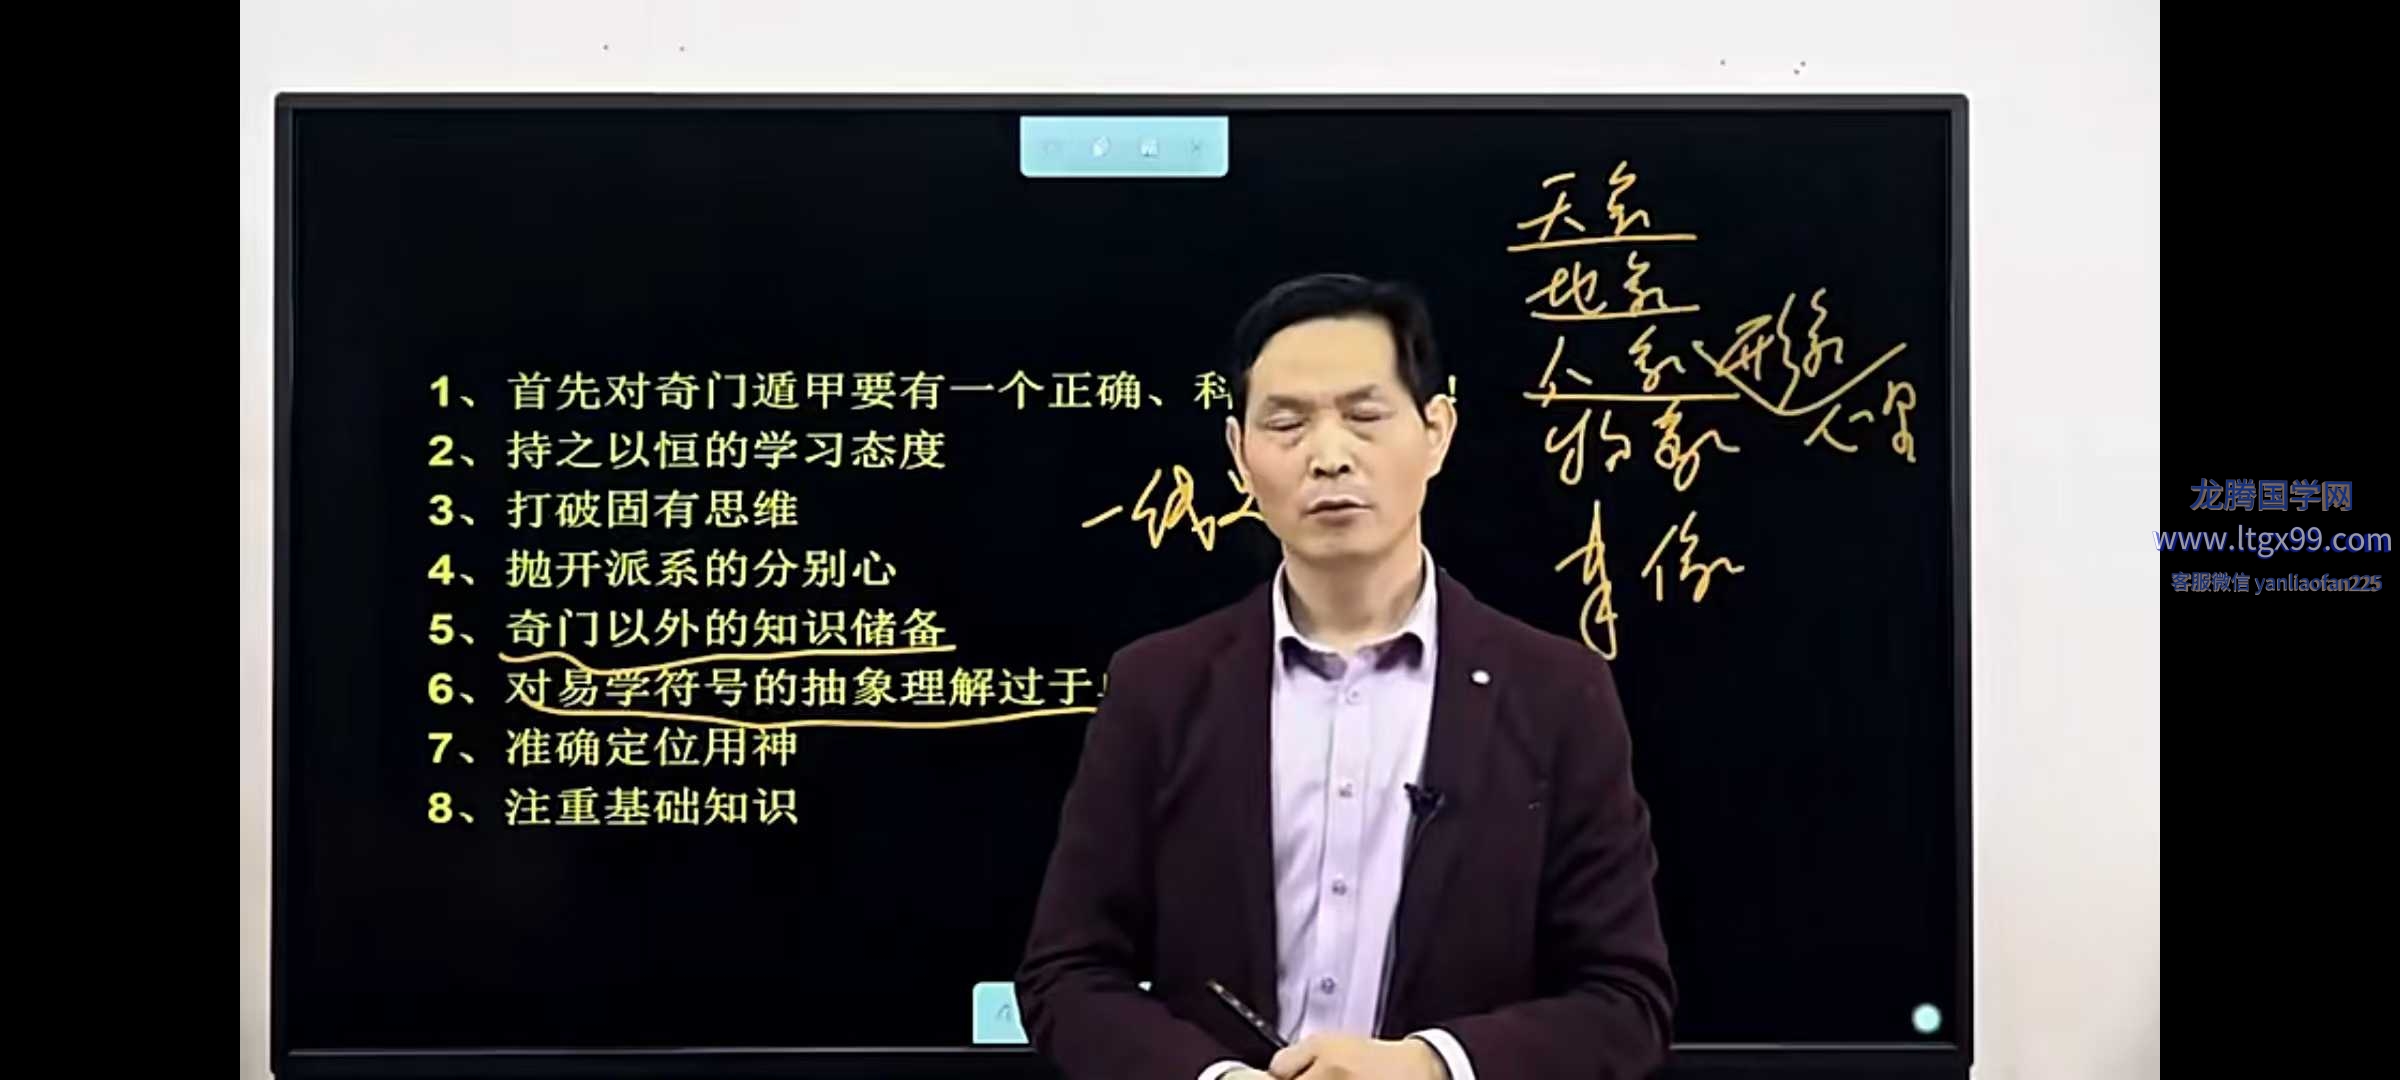 天象
地象
人象 形象
心里
物象
一线
事 像
1、首先对奇门遁甲要有一个正确、科 !
2、持之以恒的学习态度
3、打破固有思维
4、抛开派系的分别心
5、奇门以外的知识储备
6、对易学符号的抽象理解过于
7、准确定位用神
8、注重基础知识
龙腾国学网
www.ltgx99.com
客服微信 yanliaofan225